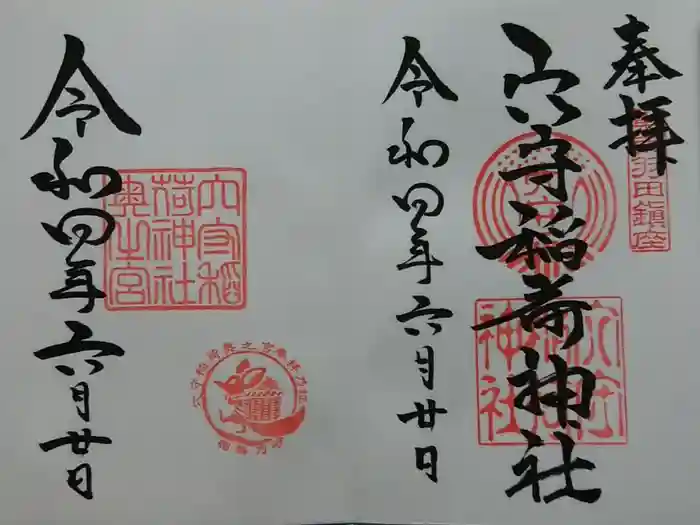 奉拝
羽田鎮座
穴守稲荷神社
穴守稲荷神社
令和四年六月廿日
穴守稲荷神社奥之宮
令和四年六月廿日